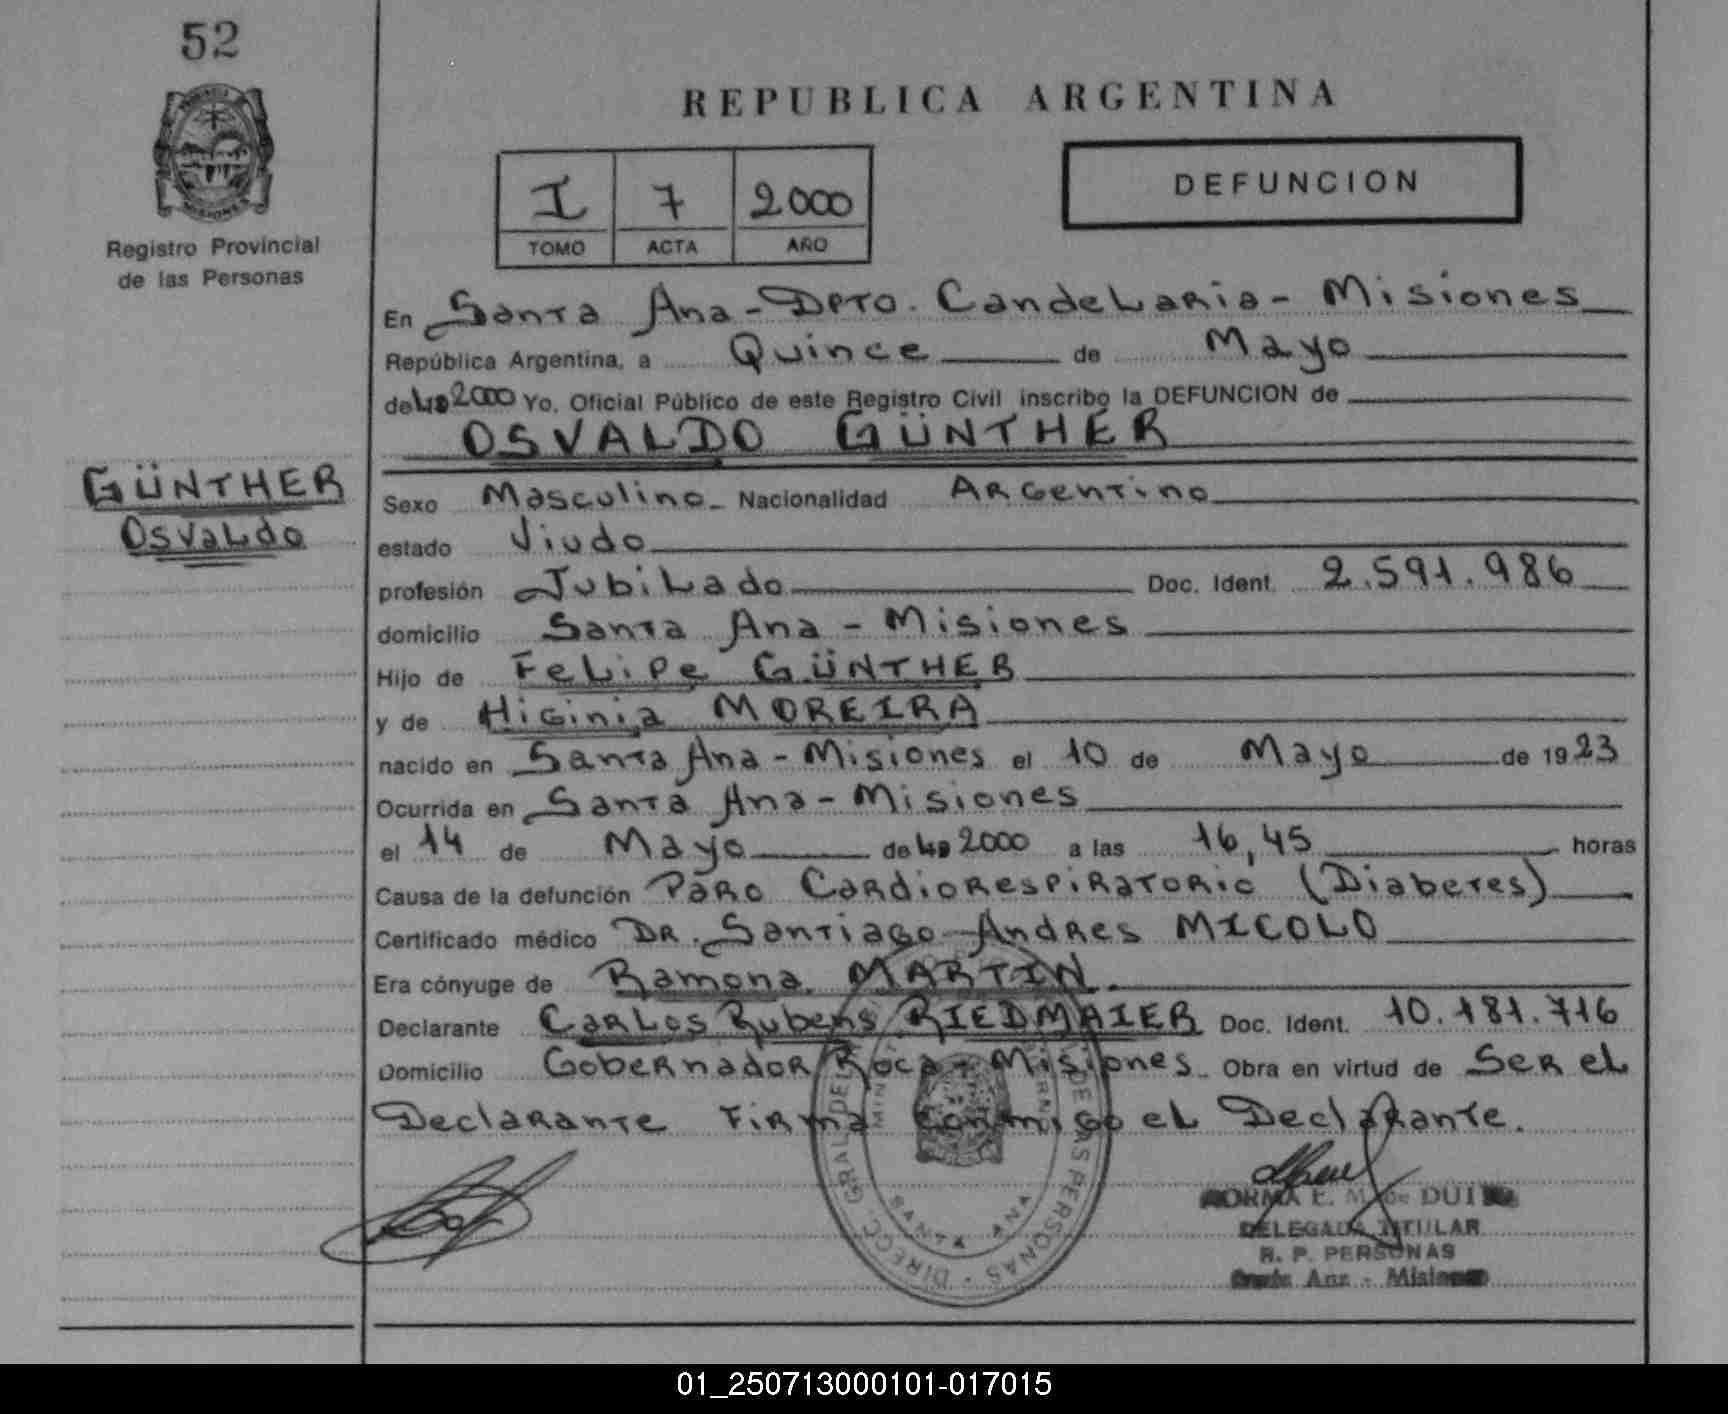 52
PROVINCIA
MISIONES
Registro Provincial
de las Personas
REPUBLICA ARGENTINA
I 7 2000
TOMO ACTA AÑO
DEFUNCION
En Santa Ana - Dpto. Candelaria - Misiones
República Argentina, a Quince de Mayo
de 2000 Yo, Oficial Público de este Registro Civil inscribo la DEFUNCION de
OSVALDO GÜNTHER
GÜNTHER
Osvaldo
Sexo Masculino Nacionalidad Argentino
estado Viudo
profesión Jubilado Doc. Ident. 2.591.986
domicilio Santa Ana - Misiones
Hijo de Felipe GÜNTHER
y de Higinia MOREIRA
nacido en Santa Ana - Misiones el 10 de Mayo de 1923
Ocurrida en Santa Ana - Misiones
el 14 de Mayo de 2000 a las 16,45 horas
Causa de la defunción Paro Cardiorespiratorio (Diabetes)
Certificado médico Dr. Santiago Andres MICOLO
Era cónyuge de Ramona MARTIN.
Declarante Carlos Rubens RIEDMAIER Doc. Ident. 10.181.716
Domicilio Gobernador Roca - Misiones Obra en virtud de Ser el
Declarante Firma conmigo el Declarante.
DIRECC. GRAL. DE LAS PERSONAS
SANTA ANA
NORMA E. M. de
DELEGADA TITULAR
R. P. PERSONAS
Santa Ana - Misiones
01_250713000101-017015